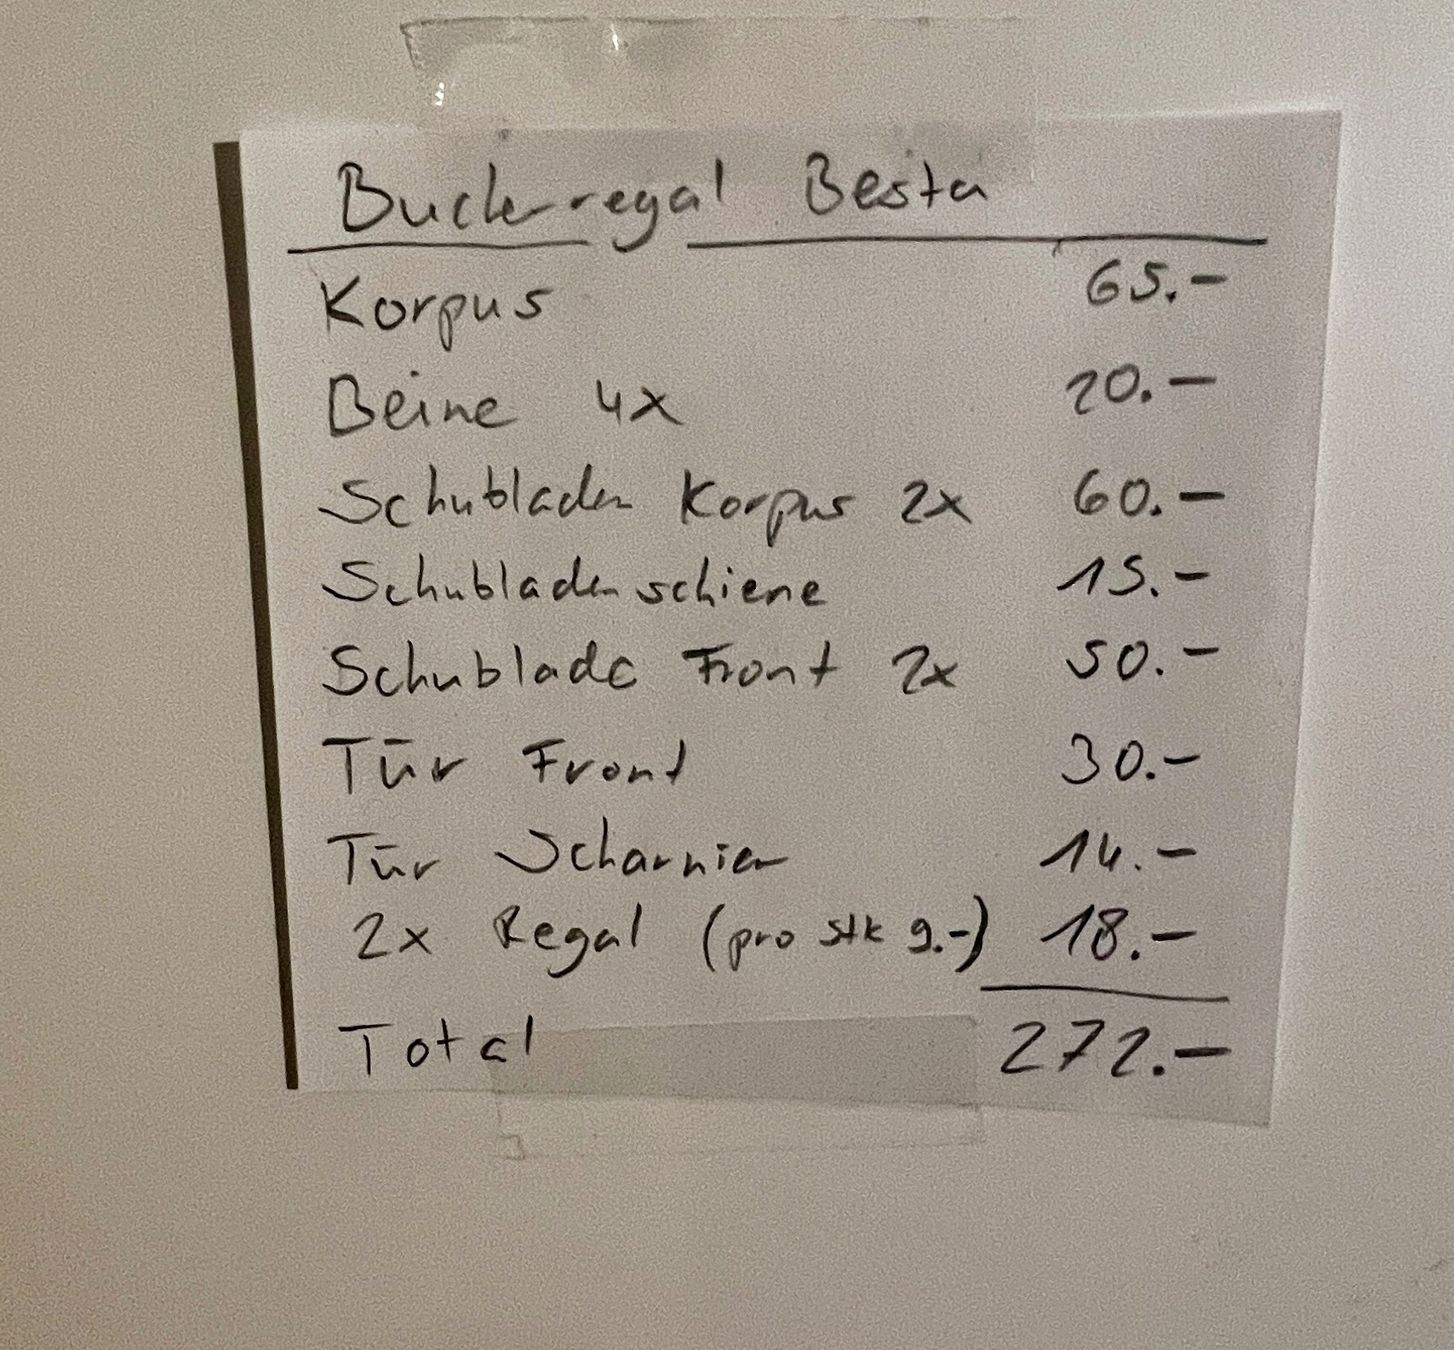 Bucherregal Besta
Korpus 65.–
Beine 4x 20.–
Schubladen Korpus 2x 60.–
Schubladenschiene 15.–
Schublade Front 2x 50.–
Tür Front 30.–
Tür Scharnier 14.–
2x Regal (pro Stk 9.–) 18.–
Total 272.–